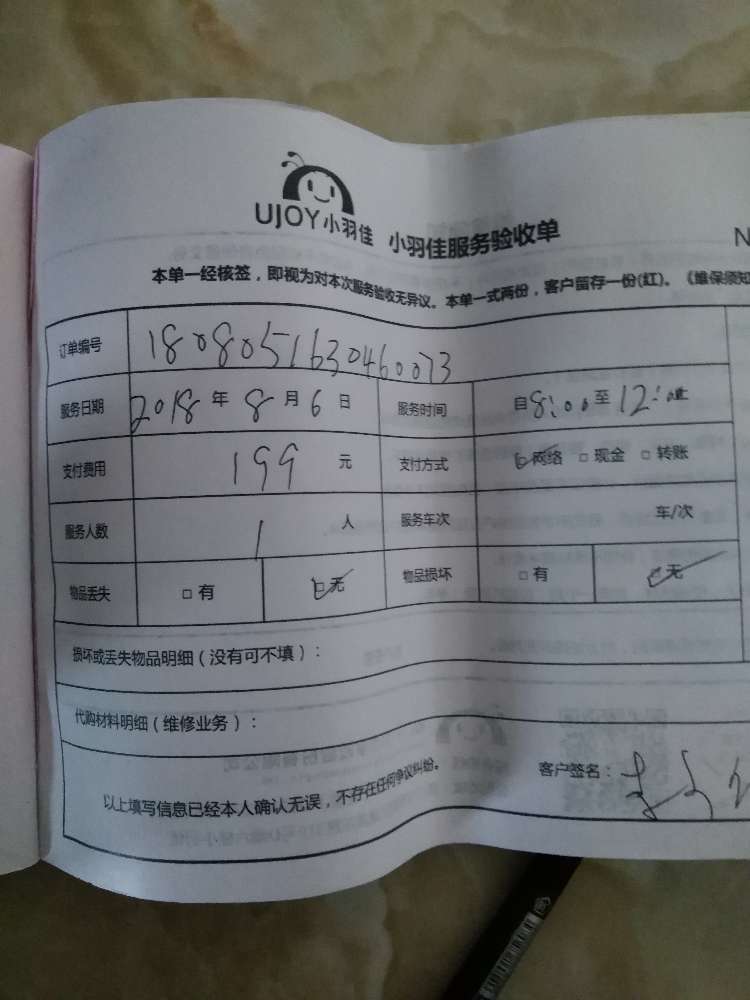 UJOY小羽佳 小羽佳服务验收单 N
本单一经核签，即视为对本次服务验收无异议。本单一式两份，客户留存一份(红)。《维保须知
订单编号 1808051630460073
服务日期 2018 年 8 月 6 日 服务时间 自8:00至12:00止
支付费用 199 元 支付方式 □网络 □现金 □转账
服务人数 1 人 服务车次 车/次
物品丢失 □有 □无 物品损坏 □有 □无
损坏或丢失物品明细（没有可不填）：
代购材料明细（维修业务）：
以上填写信息已经本人确认无误，不存在任何争议纠纷。 客户签名：